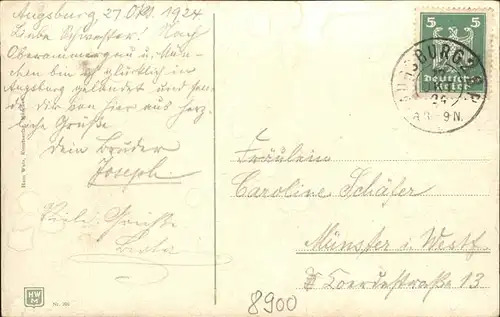 Augsburg, 27 Okt. 1924.
Liebe Schwester! Nach
Oberammergau u. Mün-
chen bin ich glücklich in
Augsburg gelandet und sen-
de Dir von hier aus herz-
liche Grüße
Dein Bruder
Joseph.
Viele Grüße
5 5
Deutsches
Reich
AUGSBURG 2
8-9 N.
Fräulein
Caroline Schäfer
Münster i. Westf.
Coerdestraße 13
8900
HW
M
Nr.